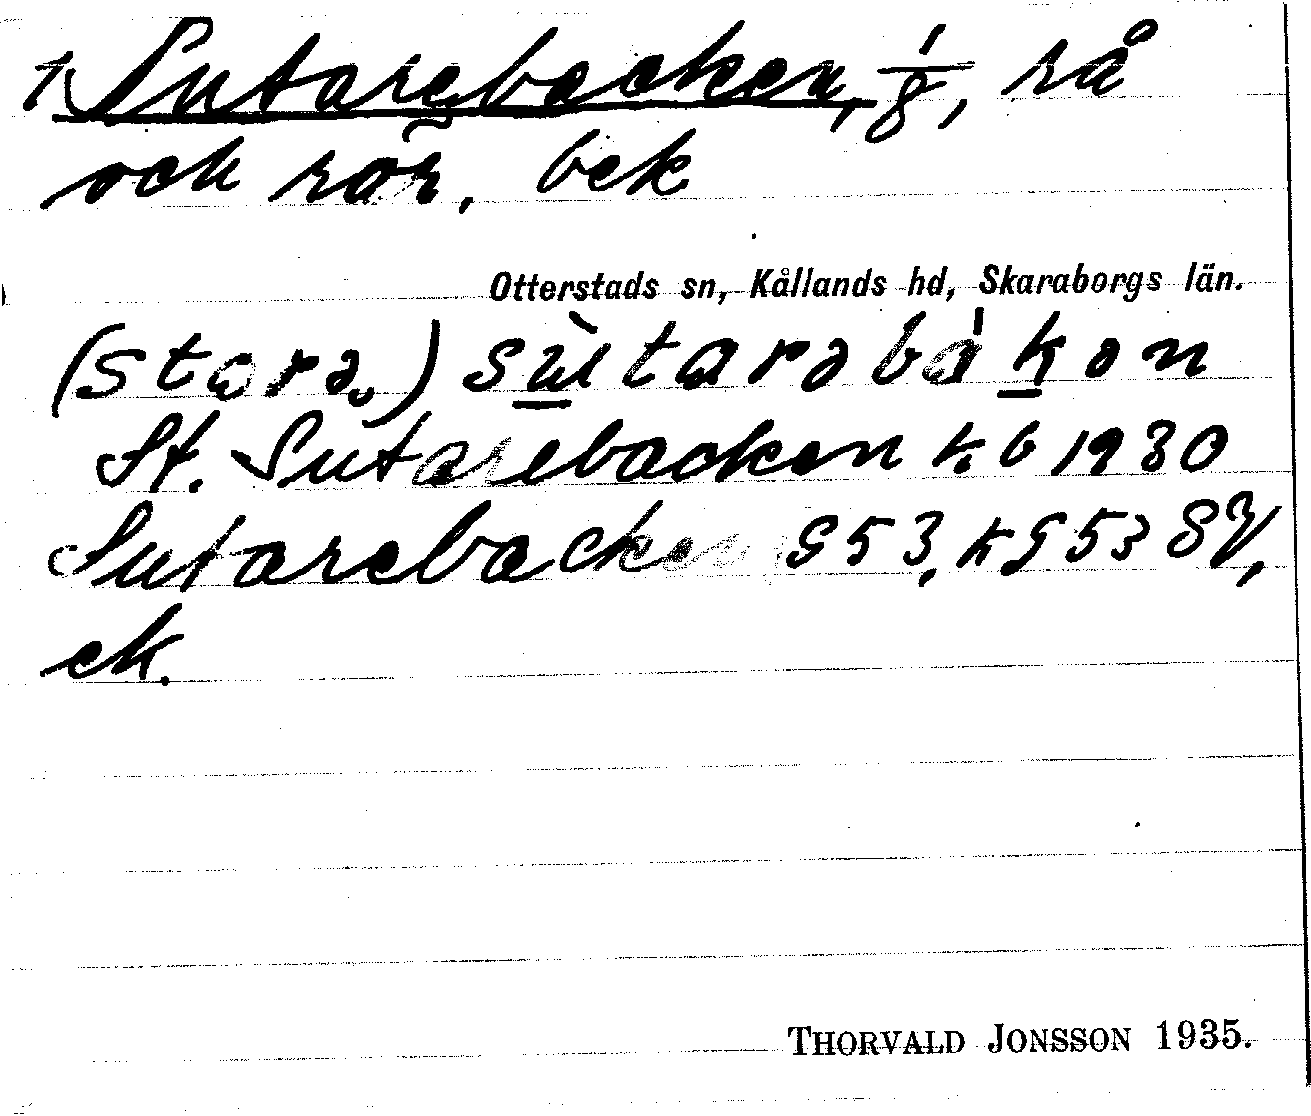 1. Sutarebacken, 1/8, rå
och rör, bek
Otterstads sn, Kållands hd, Skaraborgs län.
(stora) sùtarabákən
St. Sutarebacken kb 1930
Sutarebacken G53, KG53 SV,
ek.
THORVALD JONSSON 1935.